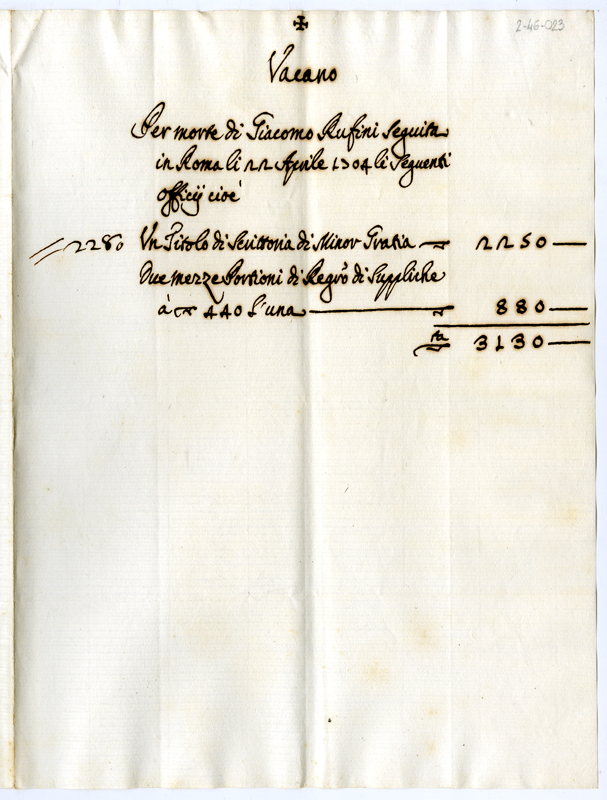 ✠
2-46-023
Vacano
Per morte di Giacomo Rufini seguita
in Roma li 22 Aprile 1704 li seguenti
officij cioè
2280 Un Titolo di Scrittoria di Minor Gratia — 2250 —
Due mezze Portioni di Regro di Suppliche
à 440 l'una — 880 —
3130 —